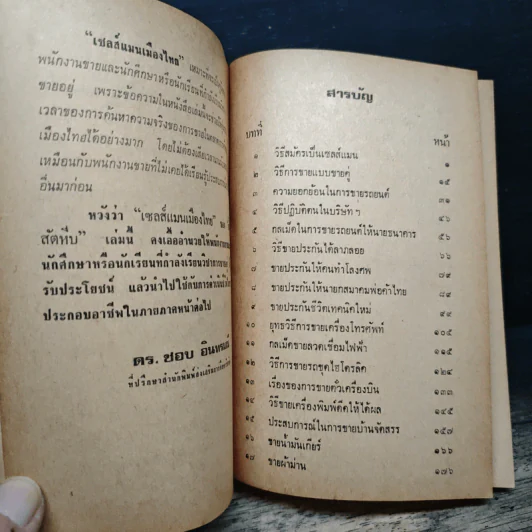 “เซลส์แมนเมืองไทย” เหมาะ
พนักงานขายและนักศึกษาหรือนักเรียนที่กำลัง
ขายอยู่ เพราะข้อความในหนังสือเล่มนี้
เวลาของการค้นหาความจริงของการขาย
เมืองไทยได้อย่างมาก โดยไม่ต้องเสียเวลา
เหมือนกับพนักงานขายที่ไม่เคยได้เรียนรู้ประสบการณ์
อื่นมาก่อน
หวังว่า “เซลส์แมนเมืองไทย” ของ
สัตหีบ” เล่มนี้ คงเอื้ออำนวยให้พนักงาน
นักศึกษาหรือนักเรียนที่กำลังเรียนวิชาการขาย
รับประโยชน์ แล้วนำไปใช้กับการ
ประกอบอาชีพในภายภาคหน้าต่อไป
ดร. ชอบ อินทรมณี
ที่ปรึกษาสำนักพิมพ์ส่งเสริม
สารบัญ
บทที่ หน้า
๑ วิธีสมัครเป็นเซลส์แมน ๑
๒ วิธีการขายแบบขายคู่ ๑๕
๓ ความยอกย้อนในการขายรถยนต์
๔ วิธีปฏิบัติตนในบริษัท ฯ
๕ กลเม็ดในการขายรถยนต์ให้นายธนาคาร ๕๖
๖ วิธีขายประกันได้ลาภลอย
๗ ขายประกันให้คนทำโลงศพ
๘ ขายประกันให้นายกสมาคมพ่อค้าไทย
๙ ขายประกันชีวิตเทคนิคใหม่
๑๐ ยุทธวิธีการขายเครื่องโทรศัพท์ ๑๐๕
๑๑ กลเม็ดขายลวดเชื่อมไฟฟ้า
๑๒ วิธีการขายรถขุดไฮโดรลิค
๑๓ เรื่องของการขายตั๋วเครื่องบิน
๑๔ วิธีขายเครื่องพิมพ์ดีดให้ได้ผล ๑๔๕
๑๕ ประสบการณ์ในการขายบ้านจัดสรร ๑๕๗
๑๖ ขายน้ำมันเกียร์ ๑๖๖
๑๗ ขายผ้าม่าน ๑๗๖